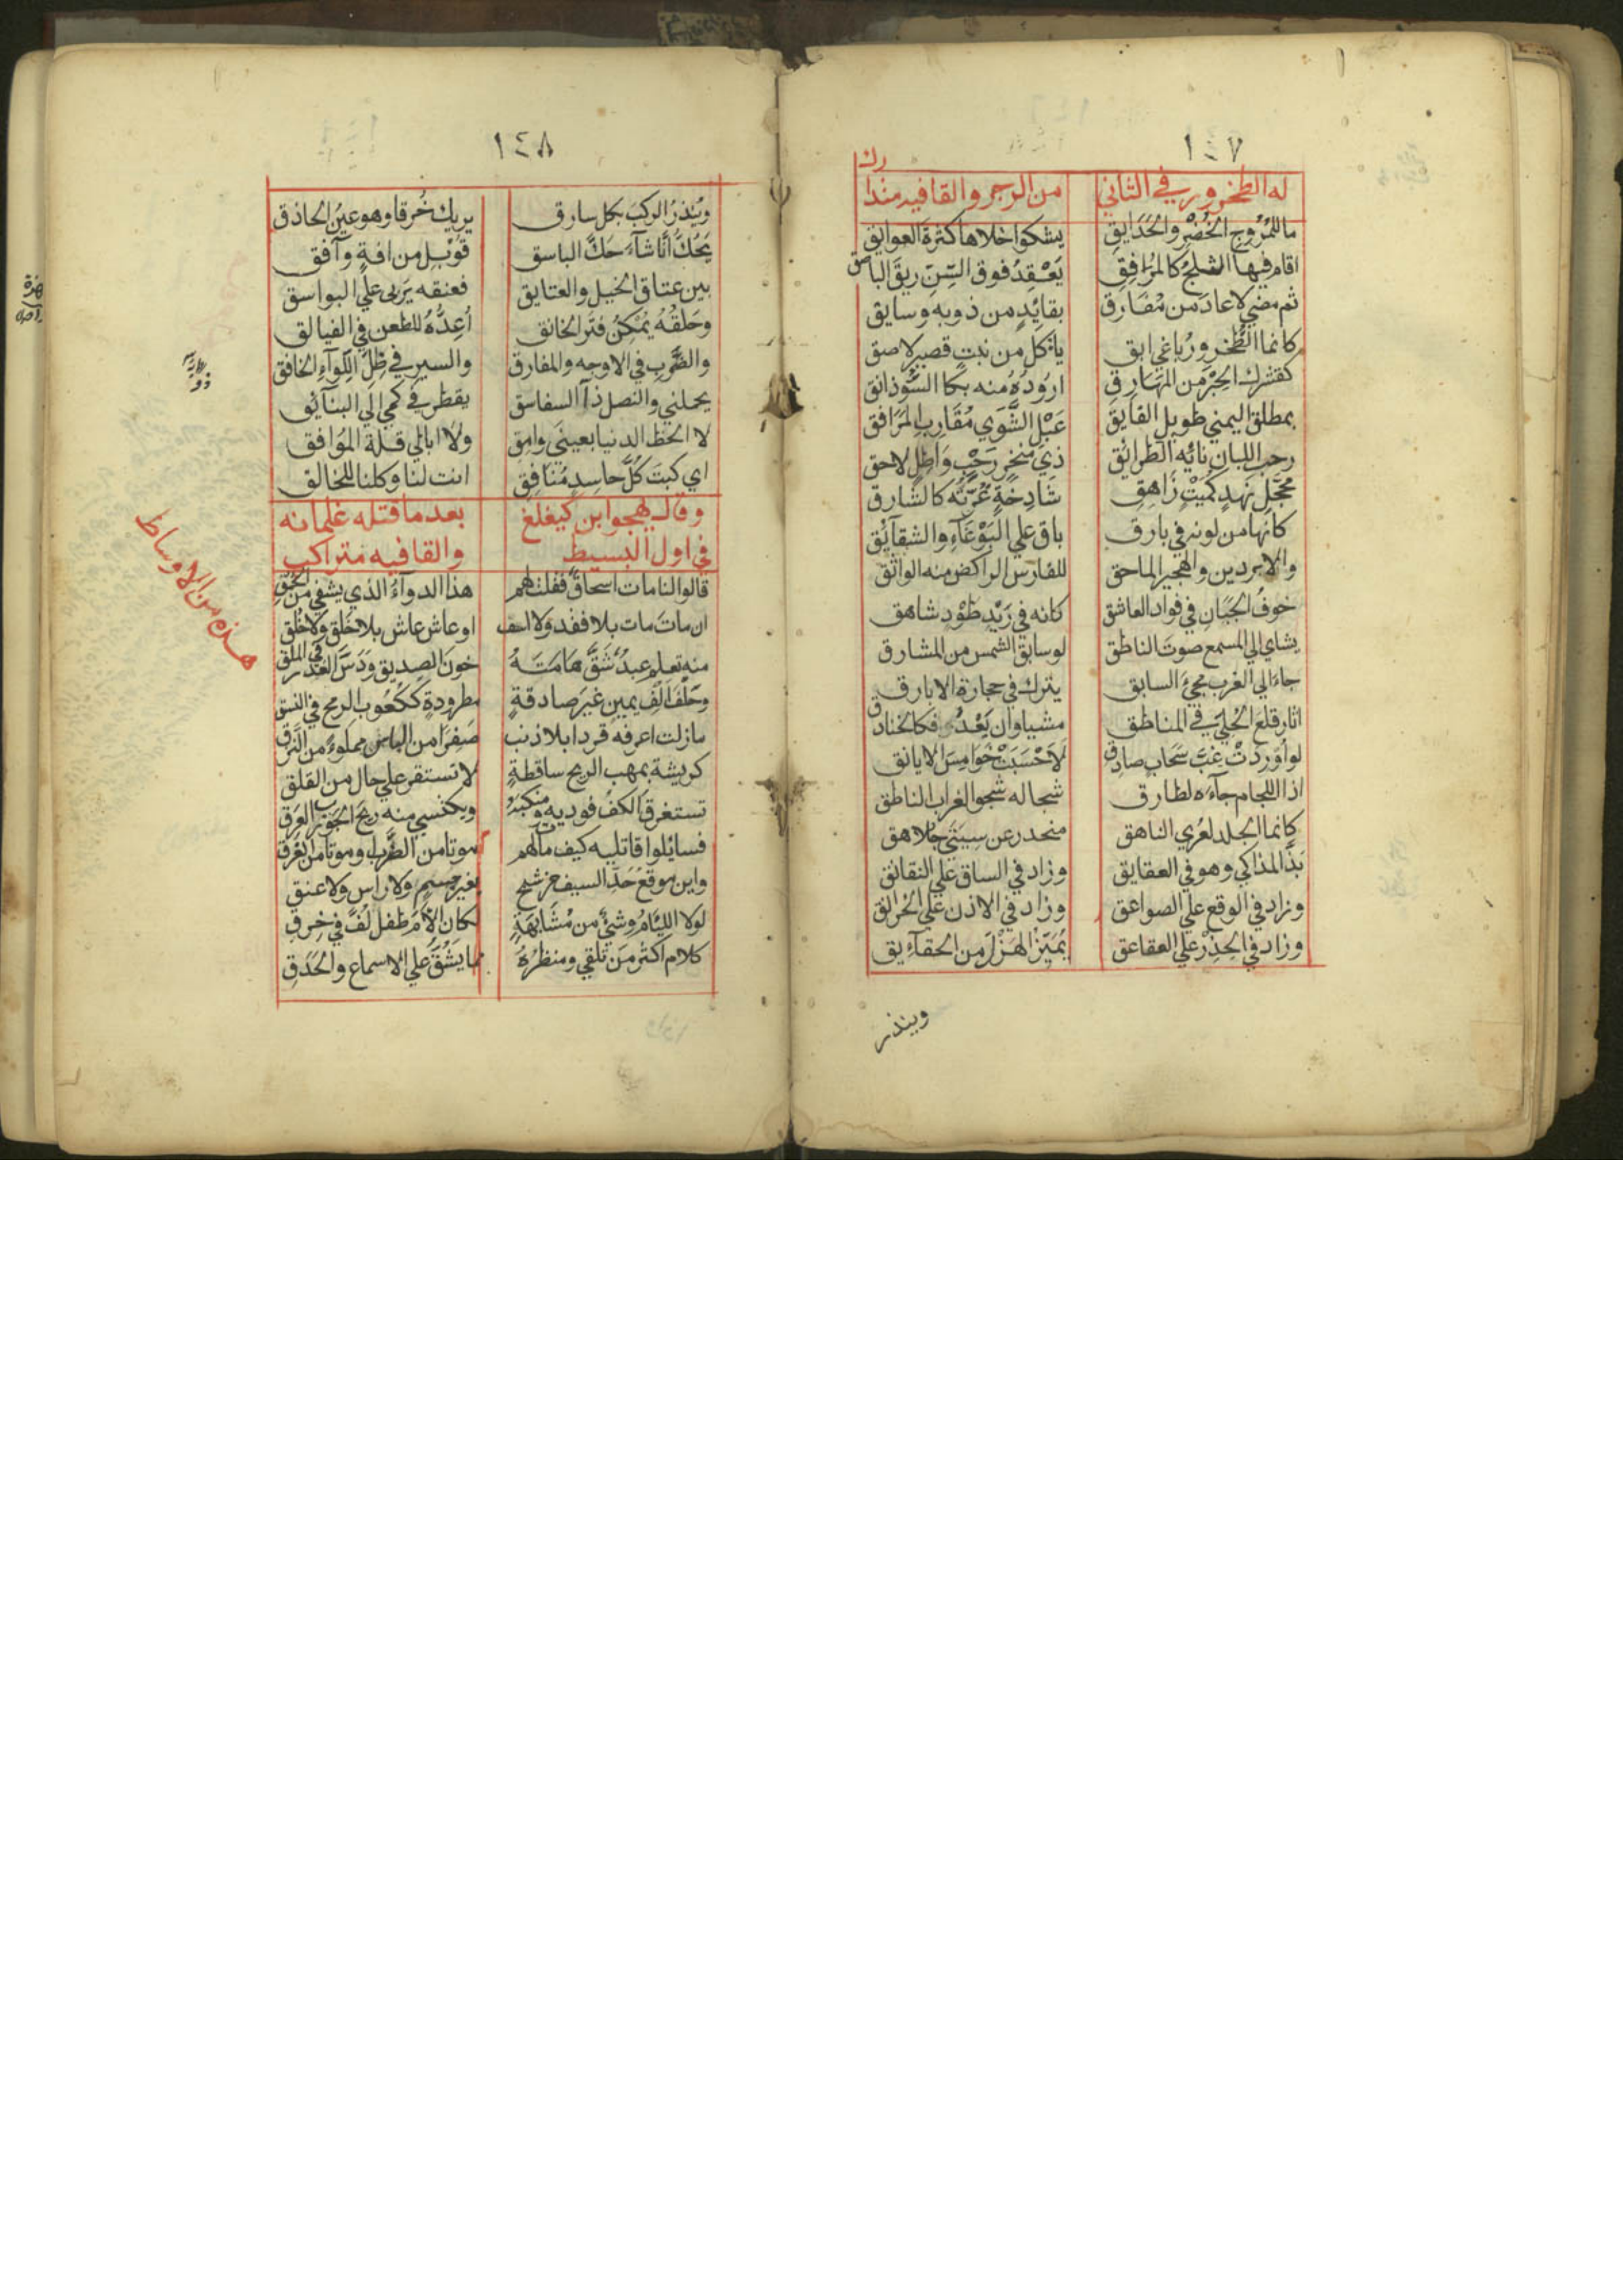 ١٤٧
له الطخرور في الثاني من الرجز والقافيه متدا
رك
ما للمُرُوجِ الخُضْرِ والحَدَايِقِ يشكوا خلاها كثرةَ العوايق
اقام فيها الثلجُ كالمُرَافِقِ يَعْقِدُ فوق السِّنِّ ريقَ الباصق
ثم مضي لا عادَ من مُفَارق بقائِدٍ من ذوبه وسايق
كانما الطُّخرورُ باغي ابق ياكل من نبتٍ قصيرٍ لاصق
كقشرك الحِبْرَ من المَهَارِقِ ارُودُهُ منه بكا السُّوذانق
بمطلق اليمني طويل الفايق عَبْلِ الشَّوَي مُقَارِبِ المَرَافق
رحب اللبان نائِه الطرائق ذي مَنخِرٍ رَحْبٍ وَاطِلٍ لاحق
مُحَجَّلٍ نَهدٍ كُمَيْتٍ زَاهِقِ شادخةٍ غُرّتُه كالشارق
كانها من لونه في بارق باقٍ علي البَوْغَآءِ والشقآئق
والابردين والهجير الماحق للفارس الراكض منه الواثق
خوفُ الجَبَانِ في فواد العاشق كانه في رَيْدِ طَوْدٍ شاهق
يشاي الي المسمع صوتَ الناطق لو سابق الشمس من المشارق
جاءَ الي الغرب مجيَ السابق يترك في حجارة الابارق
اثار قلع الحَليِ في المناطق مشيا وان يَعْدُ فكالخنادق
لو اُوردَتْ غِبَّ سَحَابٍ صادق لَاحْسَبَتْ خَوَامِسَ الايانق
اذا اللجام جآءَه لطارق شحا له شحوا الغراب الناطق
كانما الجلد لعُري الناهق منحدر عن سِيَتَي جُلاهق
بَذَّ المذاكي وهو في العقايق وزاد في الساق علي النقائق
وزاد في الوقع علي الصواعق وزاد في الاذن علي الخرانق
وزاد في الحِذرِ علي العقاعق يُمَيِّزُ الهَزْلَ من الحقآئِق
وينذر
١٤٨
ويُنذِرُ الركبَ بكل سارق يريك خُرقا وهو عينُ الحاذق
يَحُكُّ أنّا شآءَ حَكَّ الباسق قُوبِل من افةٍ وآفق
بين عتاق الخيل والعتايق فعنقه يَربي علي البواسق
وحَلقُهُ يُمكِنُ فِتَر الخانق اُعِدُّهُ للطعن في الفيالق
والضَّربِ في الاوجه والمفارق والسير في ظِلّ اللِّوآءِ الخافق
يحملني والنصل ذا السفاسق يقطر في كمي الي البنآئق
لا الحظ الدنيا بعينَي وامِق ولا ابالي قلة المُوَافق
اي كبتَ كُلّ حاسدٍ مُنَافِقِ انت لنا وكلنا للخالق
وقال يهجوا ابن كيغلغ بعد ما قتله غلمانه
في اول البسيط والقافيه متراكب
قالوا لنا مات اسحاقٌ فقلت لهم هذا الدوآءُ الذي يشفي من الحُمقِ
ان ماتَ مات بلا فقد ولا اسف او عاش عاش بلا خَلقٍ ولا خُلُقِ
منه تعلم عبدٌ شَقَّ هَامَتَهُ خونَ الصديق ودَسَّ الغدر في الملق
وحَلفَ الف يمينٍ غيرَ صادقةٍ مطرودةٍ ككُعُوبِ الرمحِ في النسق
ما زلت اعرفه قردا بلا ذنب صفرا من الباس مملوءً من النَّزَق
كريشةٍ بمهب الريح ساقطةٍ لا تستقر علي حال من القلق
تستغرقُ الكفُ فوديه ومنكبَهُ ويكتسي منه ريحَ الجَورَبِ العَرِق
فسائِلوا قاتليه كيف مات لهم موتا من الضَّربِ او موتا من الفَرَقِ
واين موقعُ حَدِّ السيف من شبح بغير جسمٍ ولا راسٍ ولا عنق
لولا اللِّئَامُ وشيٌ من مُشَابَهَةٍ لكان الأمَ طفلٍ لُفَّ في خِرَقِ
كلام اكثر مَن تلقي ومنظرُهُ مما يَشُقُّ علي الاسماع والحَدَقِ
هذه من الاوساط